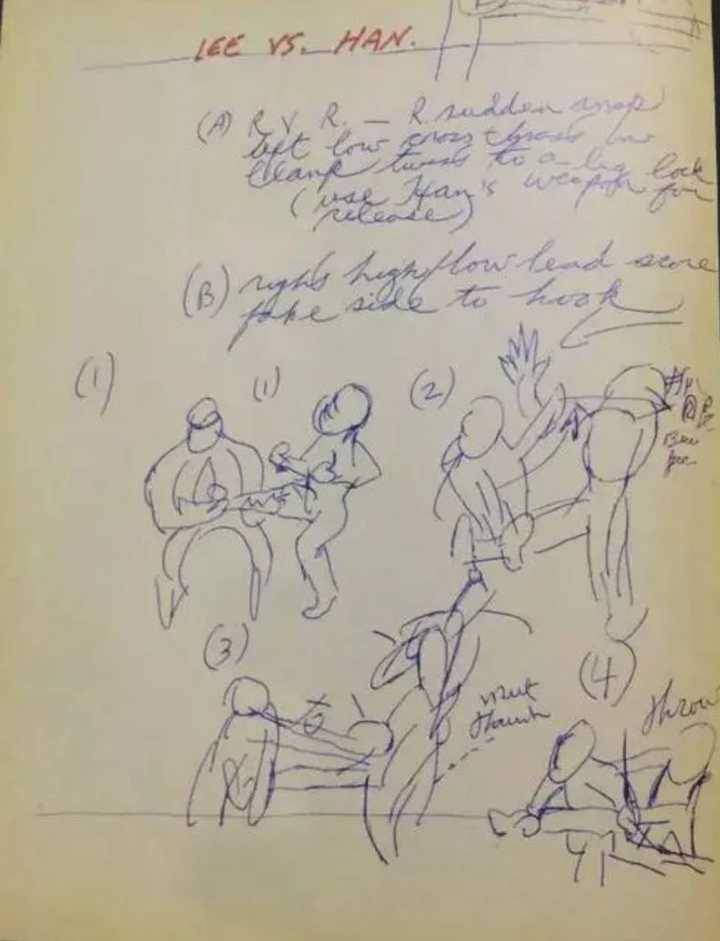 LEE VS. HAN.
(A) R V R. — R. sudden snap
left low cross thrown
clamp twist to a leg lock
(use Han's weapon for
release)
(B) right high/low lead score
fake side to hook
(1)
(1)
(2)
(3)
(4)
throw